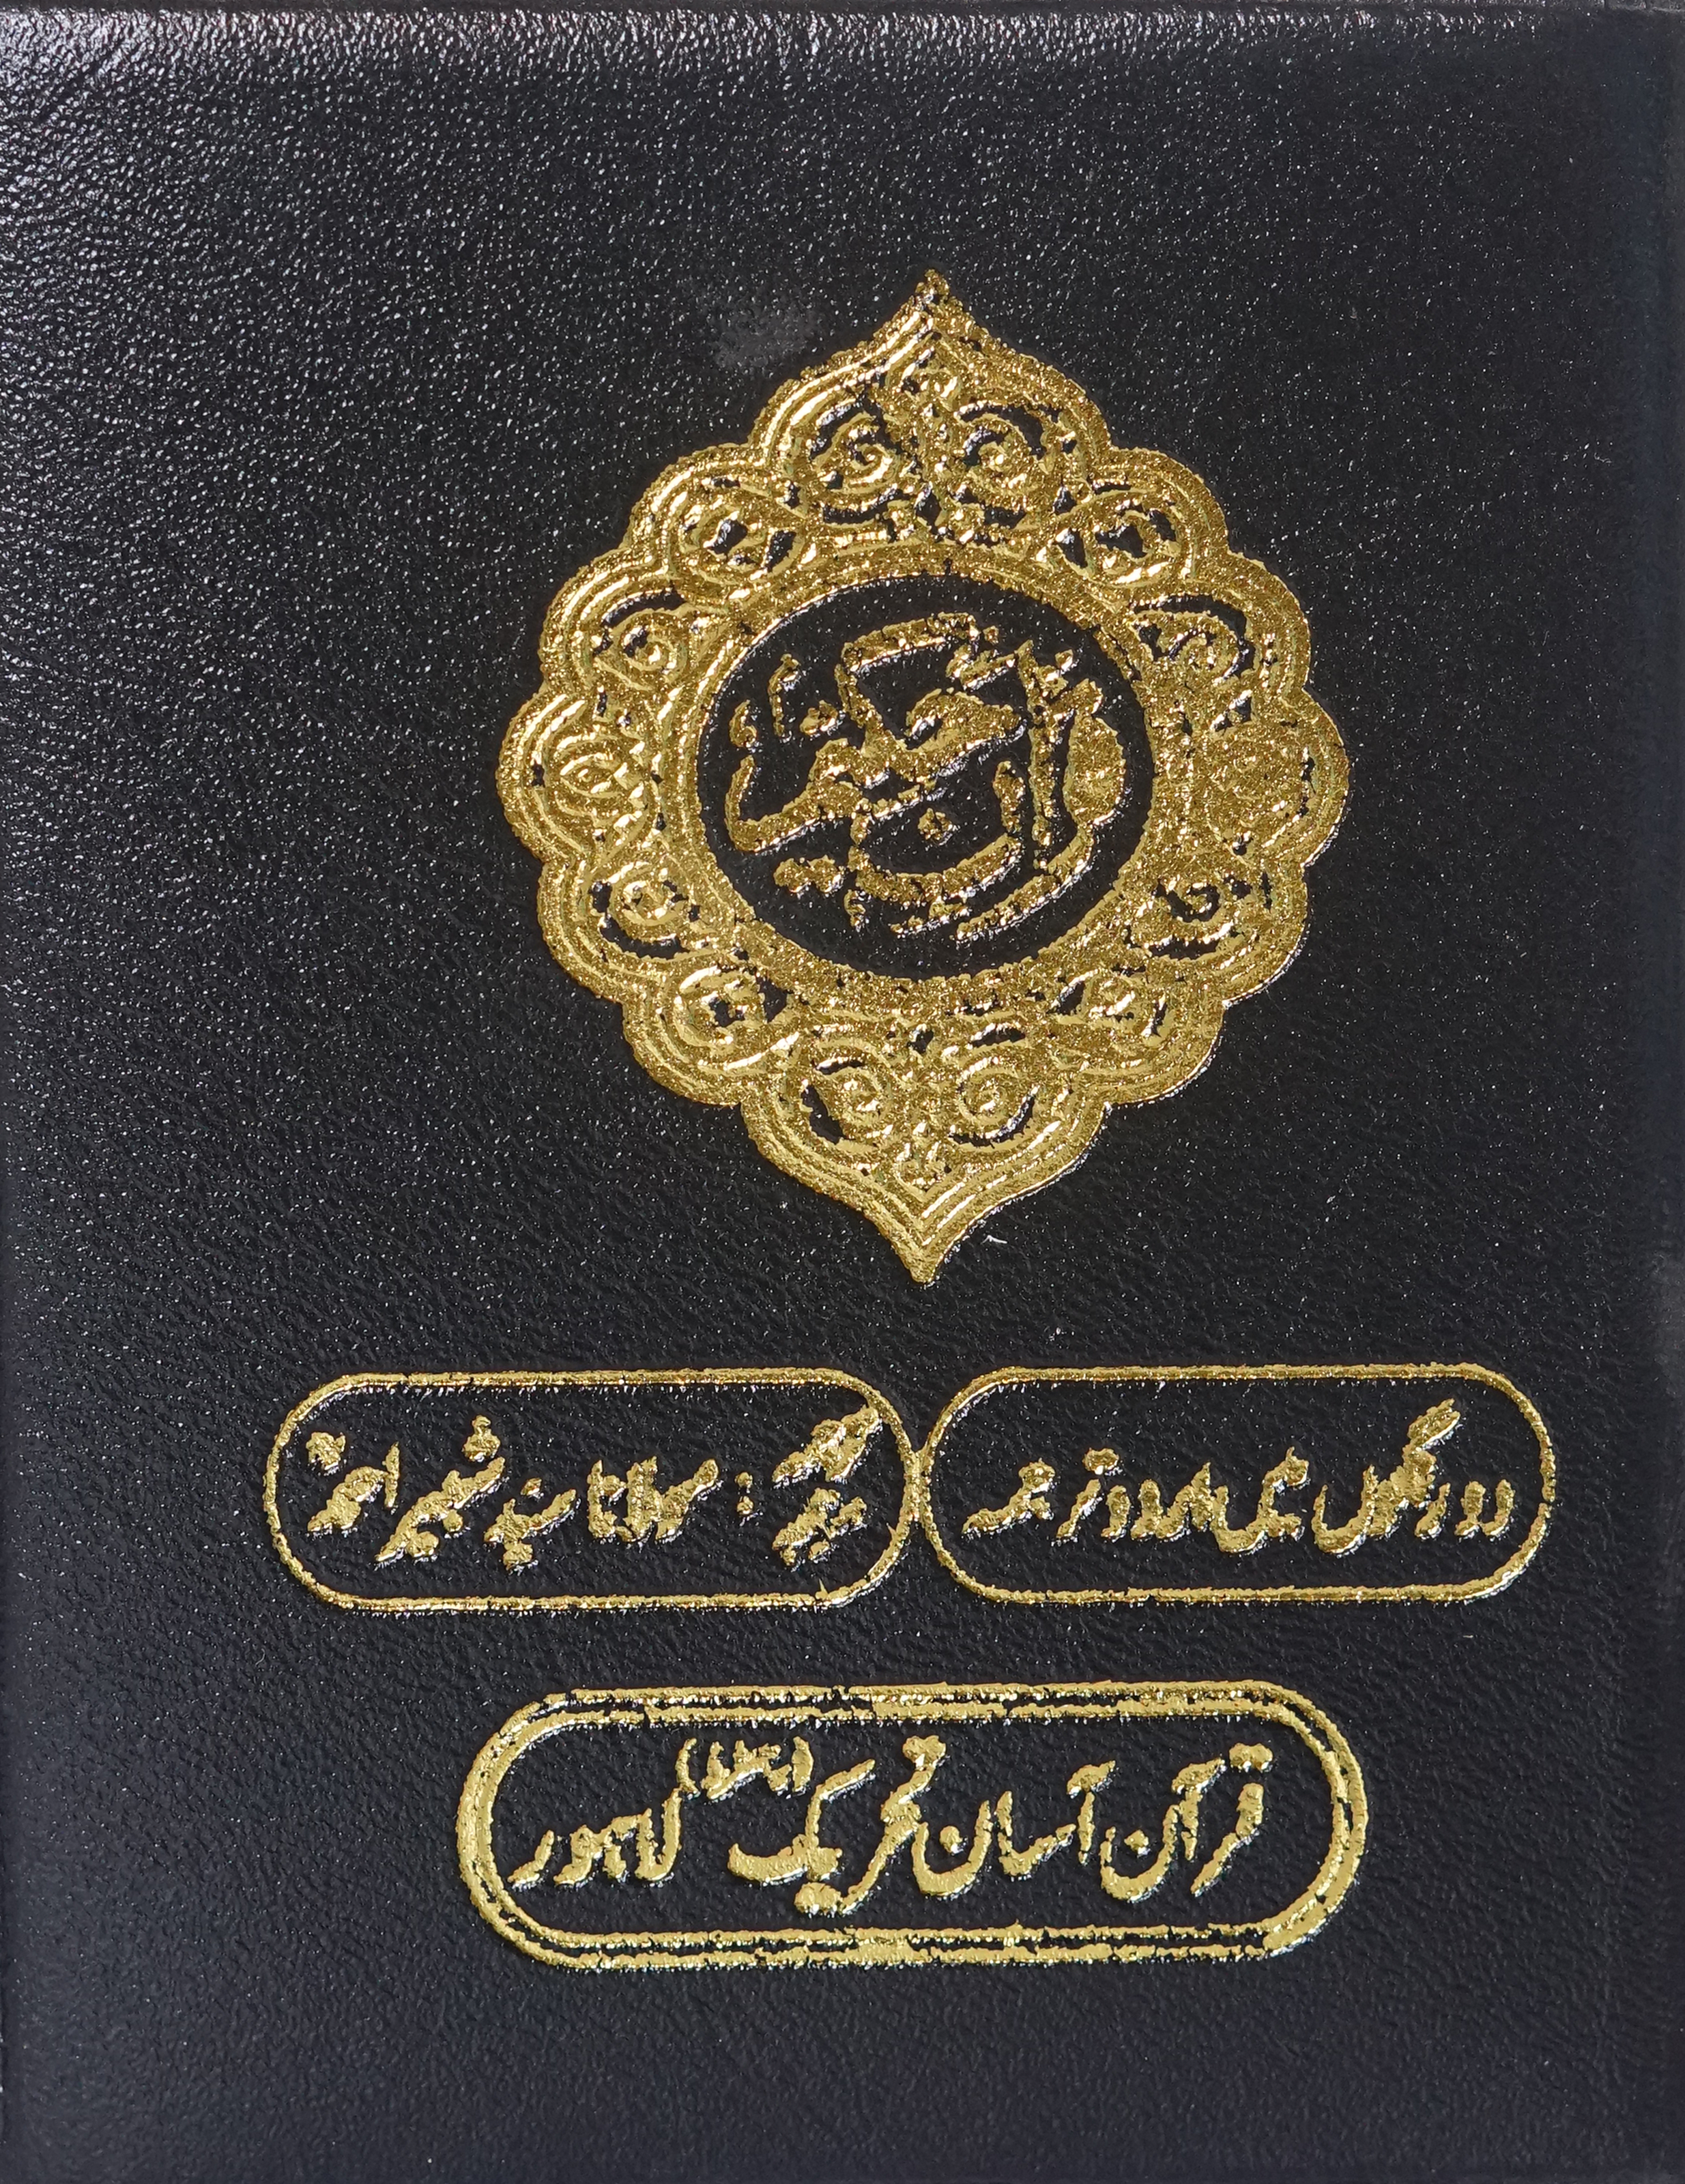 قرآن حکیم
دو رنگوں میں اردو ترجمہ
مترجم : مولانا سید شبیر احمدؒ
قرآن آسان تحریک (رجسٹرڈ) لاہور